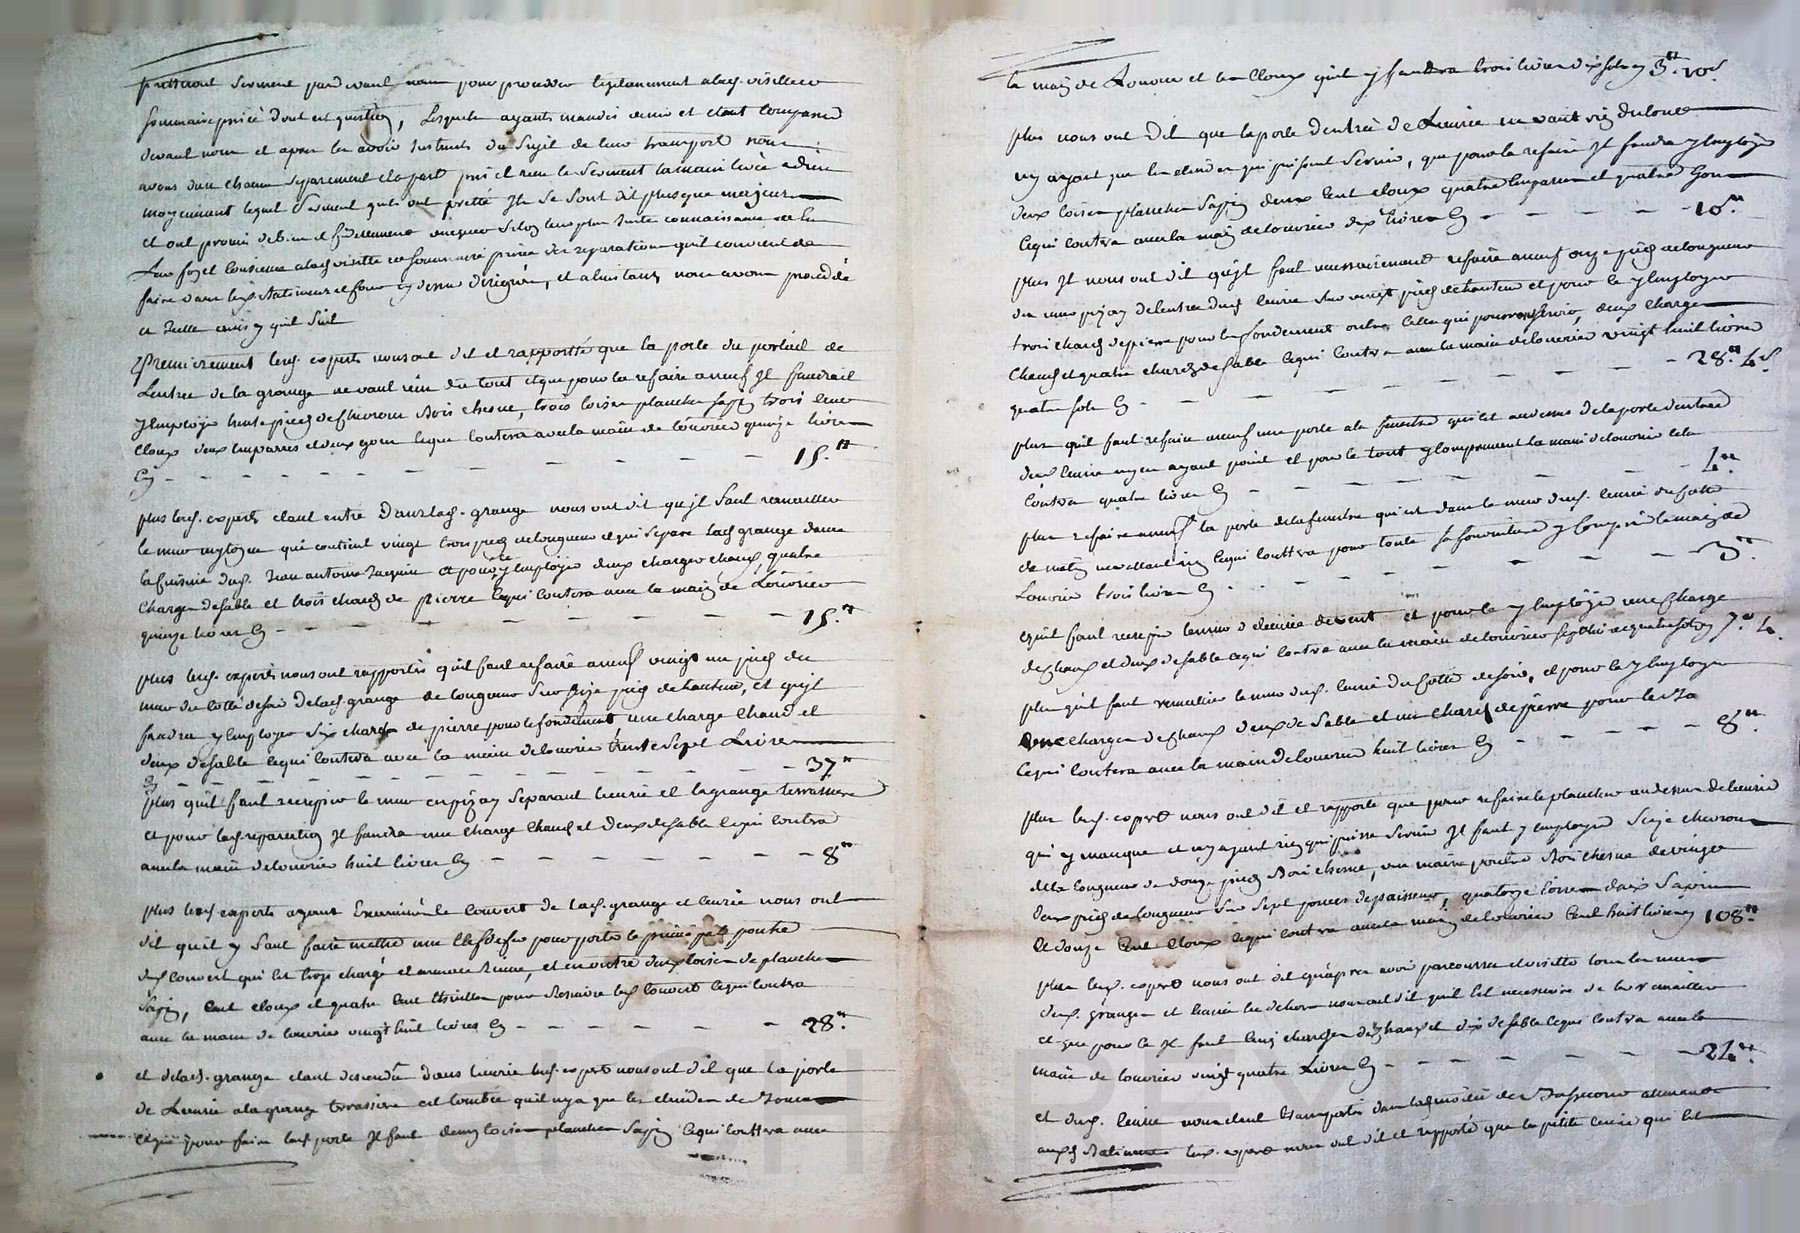 presteront serment pardevant nous pour proceder legalement a lad. visitte et
sommaire prisée dont est question, Lesquels ayants mandés venir et étant comparus
devant nous et apres les avoir instruits du sujet de leur transport nous
avons d'eux chacun séparement et a part pris et reçu le serment la main levée a dieu
moyennant lequel serment qu'ils ont pretté Ils se sont dit presque majeurs
et ont promis de bien et fidellement selon leur plus juste connaissance
a lad. visitte et sommaire prisée des reparations qu'il convient de
faire dans les batimens et fonds cy dessus désignés, et a l'instant nous avons procédé
a icelle ainsy qu'il suit
Premierement lesd. experts nous ont dit et rapporttés que la porte du portail de
L'entrée de la grange ne vaut rien du tout et que pour la refaire a neuf Il faudrait
y employer trente pieds de chevrons Bois chesne, trois loises planches sapin trois cent
Cloux deux emparres et deux gons ce qui couttera avec la main de l'ouvrier quinze livres
Cy - - - - - - - 15.tt
plus lesd. experts étant entré dans lad. grange nous ont dit qu'il faut remailler
le mur mytoyen qui contient vingt trois pieds de longueur et qui separe lad. grange d'avec
la cuisine dud. Jean antoine Jacquin et pour ce y employer deux charges chaux quatre
charges de sable et trois chards de pierre ce qui couttera avec la main de L'ouvrier
quinze livres Cy - - - - - - 15.tt
plus lesd. experts nous ont rapporttés qu'il faut refaire a neuf vingt un pieds du
mur du cotté de soir de lad. grange de longueur sur seize pieds de hauteur, et qu'il
faudra y employer six chards de pierre pour le fondement une charge chaud et
deux de sable ce qui couttera avec la main de l'ouvrier trente sept Livres
Cy - - - - - - - 37.tt
plus qu'il faut recrepir le mur en pizay separant l'ecurie et la grange terrassiere
et pour lad. reparation Il faudra une charge chaud et deux de sable ce qui couttera
avec la main de l'ouvrier huit livres Cy - - - - - - 8.tt
plus lesd. experts ayant Examinés le couvert de lad. grange et ecurie nous ont
dit qu'il y faut faire mettre une clef de fer pour porter la principale poutre
dud. couvert qui est trop chargé et menace ruine, et en outre deux loises de planches
sapin, cent cloux et quatre cent thuilles pour led. couvert ce qui couttera
avec la main de l'ouvrier vingt huit livres Cy - - - - - 28.tt
et de lad. grange étant descendu dans l'ecurie lesd. experts nous ont dit que la porte
de L'ecurie a la grange terrassiere est tombée qu'il n'y a que les
et que pour faire lad. porte Il faut demy loise planches sapin ce qui couttera avec
la main de L'ouvrier et les Cloux qu'il y faudra trois livres dix sols Cy 3.tt 10.s
plus nous ont dit que la porte d'entrée de L'ecurie ne vaut rien du tout
n'y ayant que les qui puissent servir, que pour la refaire Il faudra y employer
deux loises planches sapin deux cent cloux quatre emparres et quatre Gons
ce qui couttera avec la main de l'ouvrier dix livres Cy - - - - - 10.tt
plus Ils nous ont dit qu'il faut necessairement refaire a neuf onze pieds de longueur
du mur pizay de l'entrée dud. ecurie sur vingt pieds de hauteur et pour ce y employer
trois chards de pierre pour le fondement outre celles qui pourront servir, deux charges
chaud et quatre charges de sable ce qui couttera avec la main de l'ouvrier vingt huit livres
quatre sols Cy - - - - - - - 28.tt 4.s
plus qu'il faut refaire a neuf une porte a la fenestre qui est au dessus de la porte d'entrée
de lad. ecurie n'y en ayant point et pour le tout y comprenant la main de l'ouvrier cela
couttera quatre livres Cy - - - - - - - 4.tt
plus refaire a neuf la porte de la fenestre qui est dans le mur dud. ecurie du cotté
de matin ne valant rien ce qui couttera pour toute la fourniture y compris la main de
L'ouvrier trois livres Cy - - - - - - 3.tt
et qu'il faut recrepir le mur d'ecurie devent et pour ce y employer une charge
de chaux et deux de sable ce qui couttera avec la main de l'ouvrier sept livres quatre sols Cy 7.tt 4.
plus qu'il faut remailler le mur dud. ecurie du cotté de soir, et pour ce y employer
une charge de chaux deux de sable et un chard de pierre
ce qui couttera avec la main de l'ouvrier huit livres Cy - - - - - 8.tt
plus lesd. experts nous ont dit et rapportté que pour refaire le plancher au dessus de l'ecurie
qui y manque et n'y ayant rien qui puisse servir Il faut y employer seize chevrons
de la longueur de douze pieds Bois chesne, une maire poutre Bois chesne de vingt
deux pieds de longueur sur sept pouces d'epaisseur, quatorze loises d'aix sapin
et douze cent cloux ce qui couttera avec la main de l'ouvrier cent huit livres Cy 108.tt
plus lesd. experts nous ont dit qu'apres avoir parcouru et visitté tous les murs
dud. grange et ecurie en dehors nous ont dit qu'il est necessaire de les remailler
et que pour ce Il faut cinq charges de chaux et dix de sable ce qui couttera avec la
main de l'ouvrier vingt quatre Livres Cy - - - - - - 24.tt
et dud. ecurie nous étant transportés dans la moitié de attenante
auxd. Batimens lesd. experts nous ont dit et rapportté que la petite ecurie qui est